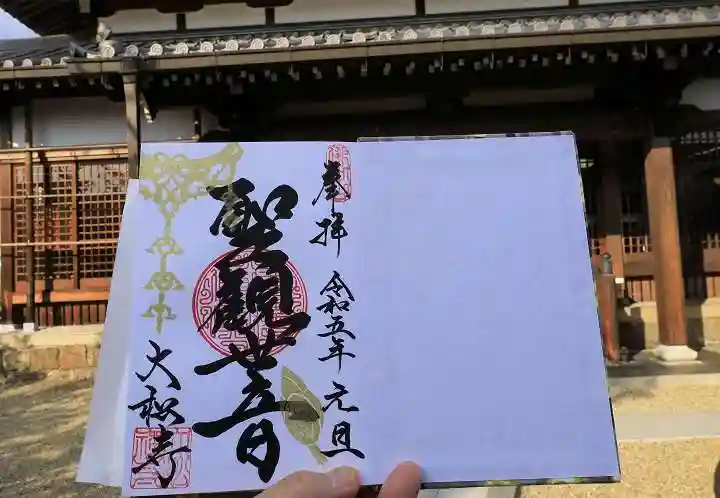 奉拝
令和五年 元旦
聖観世音
大和寺